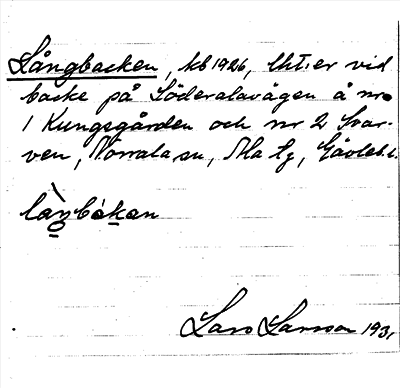 Långbacken, kb 1926, lht:er vid
backe på Söderalavägen å nr
1 Kungsgården och nr 2 Svar-
ven, Norrala sn, Hälsg, Gävleb. l.
làŋbákan
Lars Larsson 193